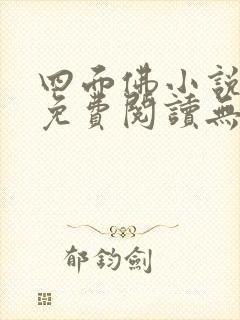 四面佛小說
免費閱讀無
郁鈞劍